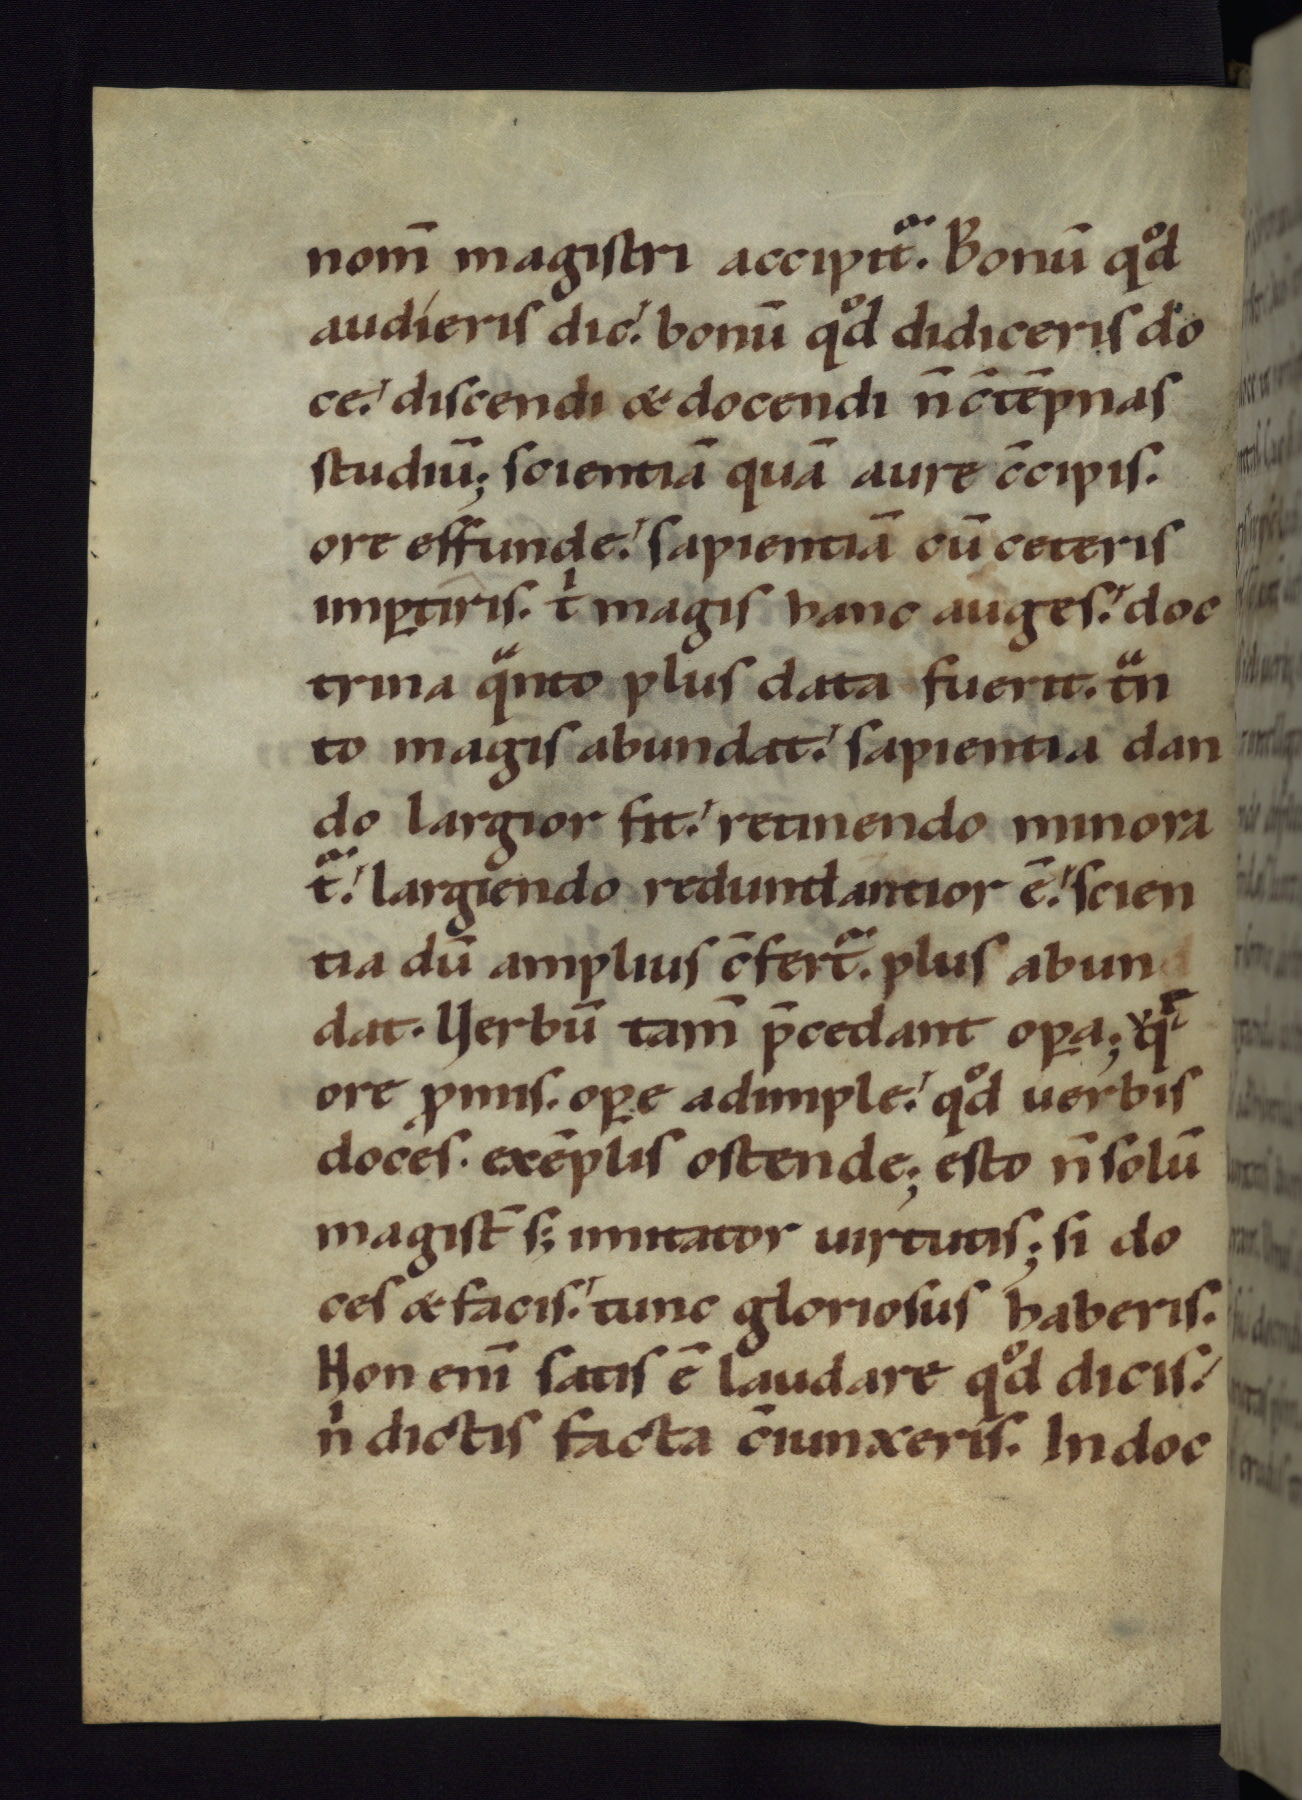 nom̄ magistri accipit᷒. Bonū qͦd
audieris dic. bonū qͦd didiceris do
ce. discendi & docendi n̄ c̄tēpnas
studiū; scientiā quā aure c̄cipis.
ore effunde. sapientiā cū ceteris
imꝑtiris. tͥ magis hanc auges. doc
trina qᷓnto plus data fuerit. tᷓn
to magis abundat. sapientia dan
do largior fit. retinendo minora
tᷓ. largiendo redundantior ē. scien
tia dū amplius c̄fertᷓ. plus abun
dat. Uerbū tam̄ p̄cedant oꝑa;
ore ꝓmis. oꝑe adimple. qͦd uerbis
doces. exēplis ostende; esto n̄ solū
magist̄ s; imitator uirtutis; si do
ces & facis. tunc gloriosus haberis.
Non enī satis ē laudare qͦd dicis.
nͥ dictis facta c̄iunxeris. In doc